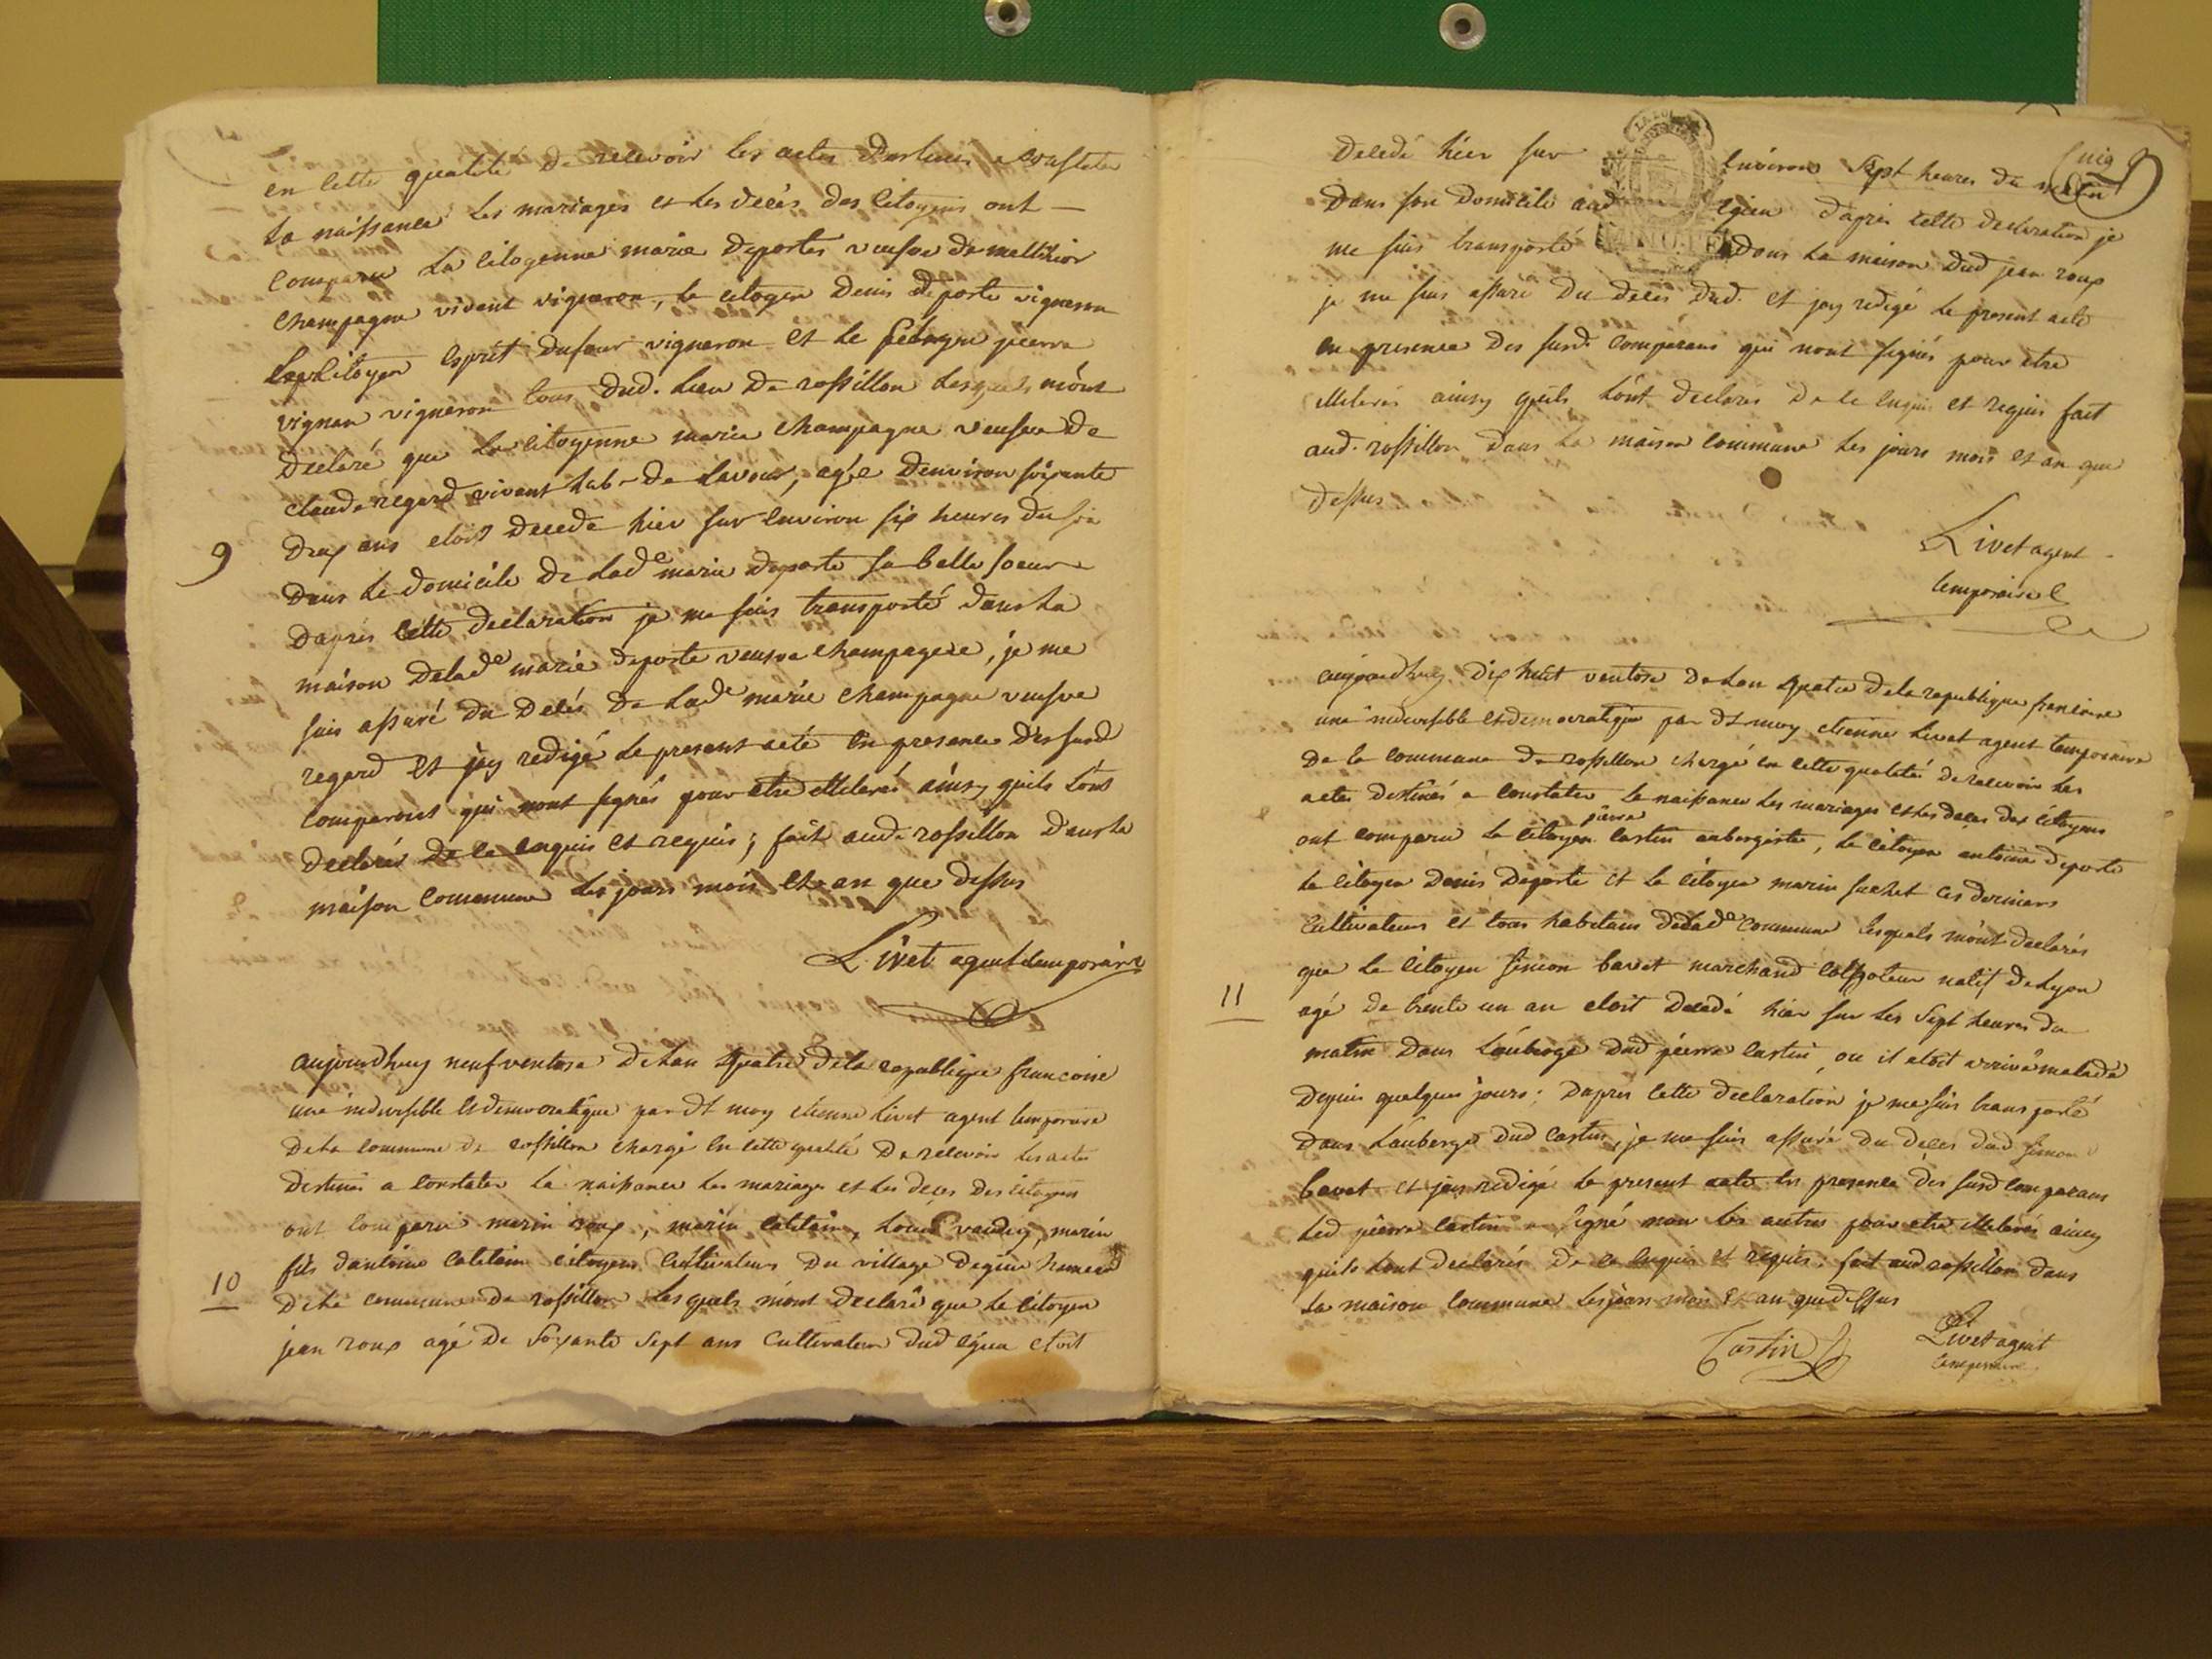 en cette qualité de recevoir les actes destinés a constater
la naissance les mariages et les décés des citoyens ont —
comparu la citoyenne marie deportes veufve de melthior
champagne vivant vigneron, le citoyen denis deporte vigneron
le citoyen esprit dufour vigneron et le citoyen pierre
vignon vigneron tous dud. lieu de rossillon lesquels m'ont
declaré que la citoyenne marie champagne veufve de
claude regard vivant hab. de lavour, agée d'environ soixante
9
dix ans etoit decede hier sur environ six heures du soir
dans le domicile de lade marie deporte sa belle soeur
d'aprés cette declaration je me suis transporté dans la
maison delade marie deporte veufve champagne, je me
suis assuré du decés de lade marie champagne veufve
regard et j'ay redigé le present acte en presence des susd
comparants qui n'ont signés pour etre illeterés ainsy quils l'ont
declarés de ce enquis et requis; fait aud. rossillon dans la
maison commune les jours mois et an que dessus
Livet agent temporaire
aujourdhuy neuf ventose de l'an quatre de la republique francoise
une indivisible et democratique par dt moy etienne Livet agent temporaire
de la commune de rossillon chargé en cette qualité de recevoir les actes
destinés a constater la naissance les mariages et les deces des citoyens
ont comparu marin roux, marin catitain, Louis vaudey, marin
fils d'antoine catitain citoyens cultivateurs du village degieu hameau
10
de la commune de rossillon lesquels m'ont declaré que le citoyen
jean roux agé de soixante sept ans cultivateur dud egieu etoit
cinq
decedé hier sur environ sept heures du matin
dans son domicile aud egieu d'apres cette declaration je
me suis transporté dans la maison dud jean roux
je me suis assuré du deces dud. et j'ay redigé le present acte
en presence des susd. comparans qui n'ont signés pour etre
illeterés ainsy quils l'ont declarés de ce enquis et requis fait
aud. rossillon dans la maison commune les jours mois et an que
dessus
Livet agent
temporaire
aujourdhuy dix huit ventose de l'an quatre de la republique francoise
une indivisible et democratique par dt moy etienne Livet agent temporaire
de la commune de rossillon chargé en cette qualité de recevoir les
actes destinés a constater la naissance les mariages et les deces des citoyens
ont comparu le citoyen pierre castin aubergiste, le citoyen antoine deporte
le citoyen denis deporte et le citoyen marin suchet ces derniers
cultivateurs et tous habitans delade commune lesquels m'ont declarés
que le citoyen simon bavet marchand colporteur natif de Lyon
11
agé de trente un an etoit decedé hier sur les sept heures du
matin dans l'auberge dud pierre castin, ou il etoit arrivé malade
depuis quelques jours; d'apres cette declaration je me suis transporté
dans l'auberge dud castin, je me suis assuré du deces dud simon
bavet et j'ay redigé le present acte en presence des susd comparans
led pierre castin a signé non les autres pour etre illeterés ainsy
quils l'ont declarés de ce enquis et requis. fait aud rossillon dans
la maison commune les jours mois et an que dessus
Castin
Livet agent
temporaire